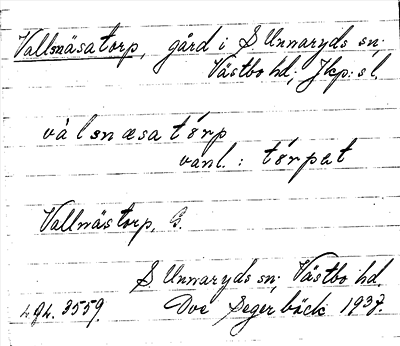 Vallnäsatorp, gård i S Unnaryds sn;
Västbo hd, Jkp: s l
válsnæsa tǿrp
vanl.: tǿrpet
Vallnästorp, G.
S Unnaryds sn; Västbo hd.
Lgh. 3559. Ove Segerbäck 1937.